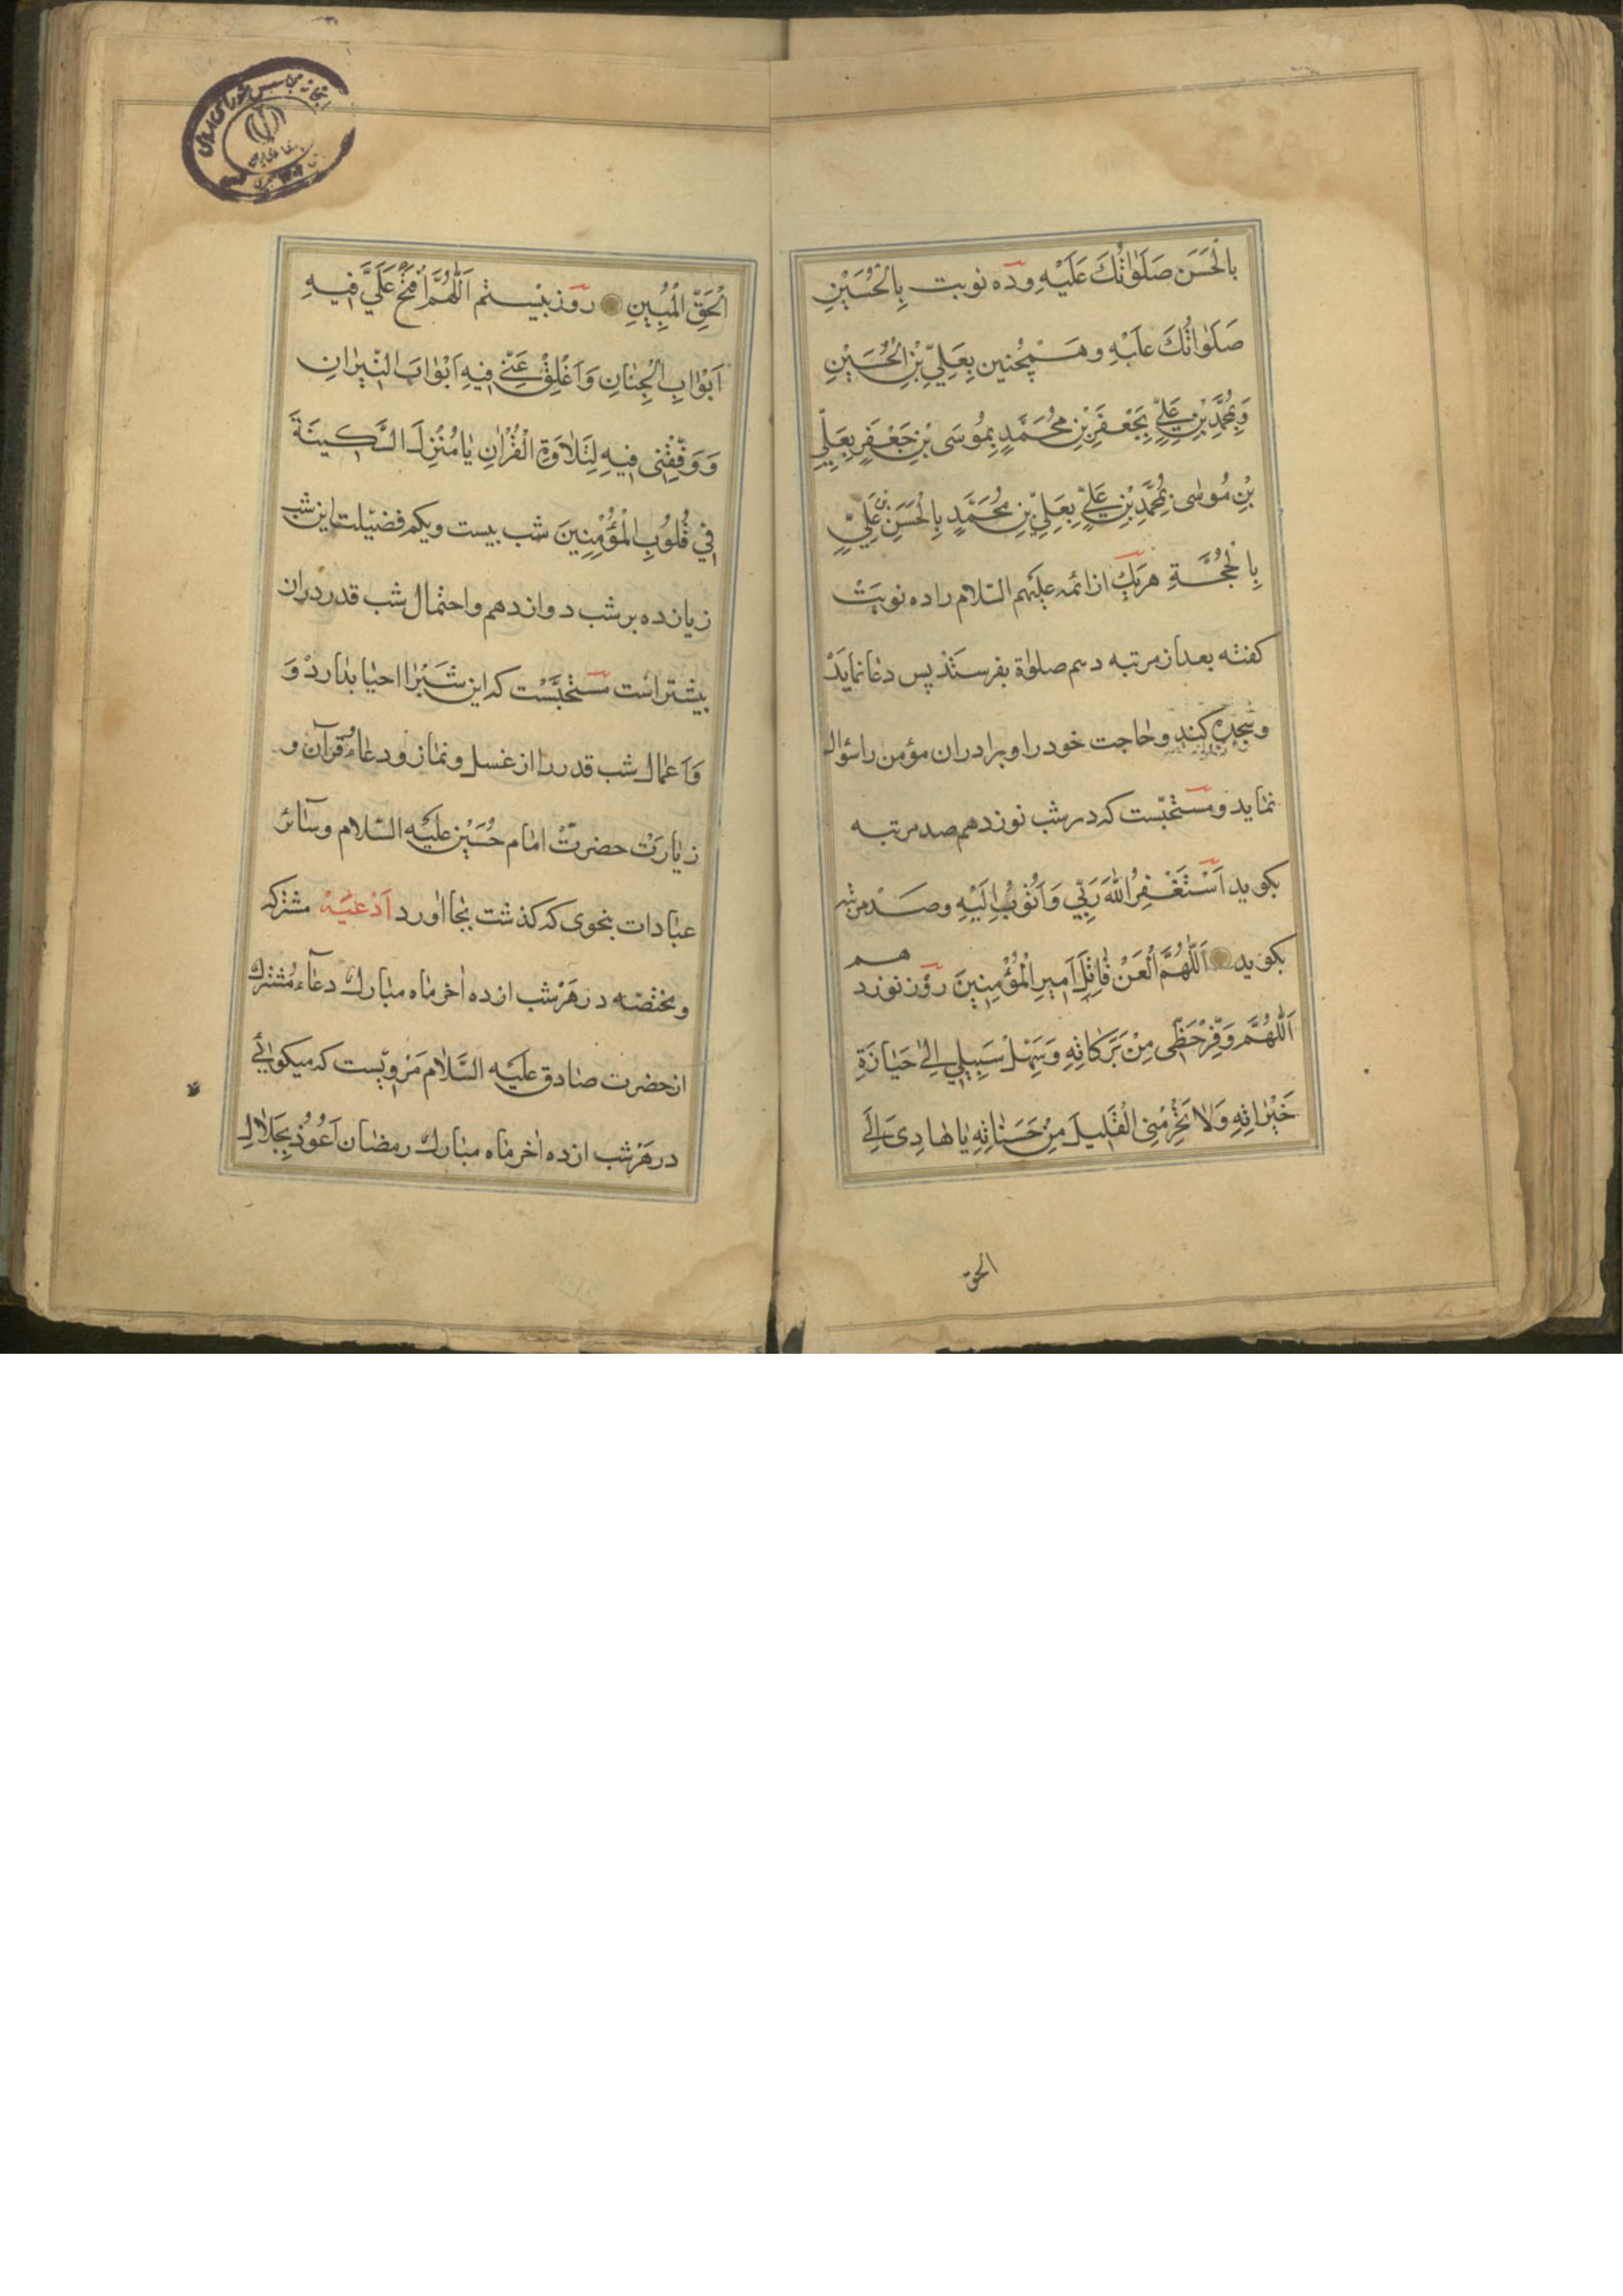 بِالْحَسَنِ صَلَوٰاتُكَ عَلَيْهِ وده نوبت بِالْحُسَيْنِ
صَلَوٰاتُكَ عَلَيْهِ وهَمْچنين بِعَلِيِّ بْنِ الْحُسَيْنِ
وَبِمُحَمَّدِ بْنِ عَلِيٍّ بِجَعْفَرِ بْنِ مُحَمَّدٍ بِمُوسَى بْنِ جَعْفَرٍ بِعَلِيِّ
بْنِ مُوسٰى بِمُحَمَّدِ بْنِ عَلِيٍّ بِعَلِيِّ بْنِ مُحَمَّدٍ بِالْحَسَنِ بْنِ عَلِيٍّ
بِالْحُجَّةِ هريك از ائمه عليهم السّلام را ده نوبَتْ
كفته بعد از مرتبه دهم صلوٰة بفرستَنْد پس دعا نمايَدْ
وسجده كند وحٰاجت خود را وبرادران مؤمن را سؤال
نمٰايد ومستحبّست كه در شب نوزدهم صد مرتبه
بكويد اَسْتَغْفِرُ اللهَ رَبّي وَاَتُوبُ اِلَيْهِ وصَدْ مرتبه
بكويد اَللّٰهُمَّ الْعَنْ قٰاتِلَ اَمِيرِ الْمُؤْمِنِينَ روز نوزد هم
اَللّٰهُمَّ وَفِّرْ حَظّي مِنْ بَرَكٰاتِهِ وَسَهِّلْ سَبِيلي اِلىٰ حَيٰازَةِ
خَيْرٰاتِهِ وَلاٰ تَحْرِمْنِي الْقَلِيلَ مِنْ حَسَنٰاتِهِ يٰا هٰادِىَ اِلَى
الحق
الْحَقِّ الْمُبِينِ روز بيستم اَللّٰهُمَّ افْتَحْ عَلَيَّ فِيهِ
اَبْوٰابَ الْجِنٰانِ وَاَغْلِقْ عَنّي فِيهِ اَبْوٰابَ النّيرٰانِ
وَوَفِّقْنِي فِيهِ لِتَلاٰوَةِ الْقُرْاٰنِ يٰا مُنْزِلَ السَّكِينَةَ
فِي قُلُوبِ الْمُؤْمِنِينَ شب بيست ويكم فضيلت اين شب
زيانده بر شب دوازدهم واحتمال شب قدر در ان
بيشتر است مستحبَّسْت كه اين شب را احيا بدارد وَ
وَاَعمٰال شب قدر را از غسل ونمٰاز ودعاء وقرآن و
زيٰارَتْ حضرتْ امٰام حُسَيْن عليه السّلام وسٰائر
عبٰادات بنحوى كه كذشت بجا اورد اَدْعيَهْ مشتركه
ومختصّه در هَرْ شب از ده اٰخر مٰاه مبٰارك دعآء مُشترك
از حضرت صٰادق عليه السَّلاٰم مَرْويّست كه ميكوئي
در هَرْ شب از ده اٰخر مٰاه مبٰارك رمضٰان اَعُوذُ بِجَلاٰلِ